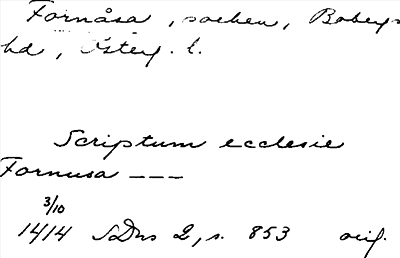 Fornåsa, socken, Bobergs
hd, Österg. l.
Scriptum ecclesie
Fornusa ---
3/10
1414 SDns 2, s. 853 orig.